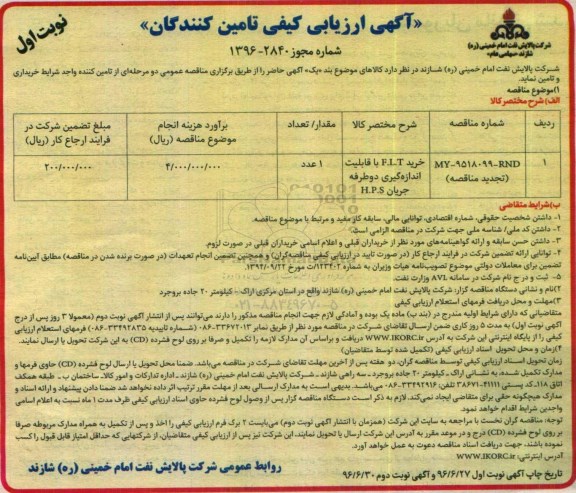 نوبت اول
«آگهی ارزیابی کیفی تامین کنندگان»
شماره مجوز ۲۸۴۰-۱۳۹۶
شرکت پالایش نفت امام خمینی (ره)
شازند «سهامی عام»
شرکت پالایش نفت امام خمینی (ره) شازند در نظر دارد کالاهای موضوع بند «یک» آگهی حاضر را از طریق برگزاری مناقصه عمومی دو مرحله‌ای از تامین کننده واجد شرایط خریداری
و تامین نماید.
۱)موضوع مناقصه
الف) شرح مختصر کالا
ردیف
شماره مناقصه
شرح مختصر کالا
مقدار/ تعداد
برآورد هزینه انجام موضوع مناقصه (ریال)
مبلغ تضمین شرکت در فرایند ارجاع کار (ریال)
۱
MY-۹۵۱۸۰۹۹-RND
(تجدید مناقصه)
خرید F.I.T با قابلیت
اندازه‌گیری دوطرفه
جریان H.P.S
۱ عدد
۴/۰۰۰/۰۰۰/۰۰۰
۲۰۰/۰۰۰/۰۰۰
ب)شرایط متقاضی
۱- داشتن شخصیت حقوقی، شماره اقتصادی، توانایی مالی، سابقه کار مفید و مرتبط با موضوع مناقصه.
۲- داشتن کد ملی/ شناسه ملی جهت شرکت در مناقصه الزامی است.
۳- داشتن حسن سابقه و ارائه گواهینامه‌های مورد نظر از خریداران قبلی و اعلام اسامی خریداران قبلی در صورت لزوم.
۴- توانایی ارائه تضمین شرکت در فرایند ارجاع کار (در صورت تایید در ارزیابی کیفی مناقصه‌گران) و همچنین تضمین انجام تعهدات (در صورت برنده شدن در مناقصه) مطابق آیین‌نامه
تضمین برای معاملات دولتی موضوع تصویب‌نامه هیات وزیران به شماره
۵- ثبت و درج نام شرکت در سامانه AVL وزارت نفت.
۲)نام و نشانی دستگاه مناقصه گزار: شرکت پالایش نفت امام خمینی (ره) شازند واقع در استان مرکزی اراک - کیلومتر ۲۰ جاده بروجرد
۳)مهلت و محل دریافت فرمهای استعلام ارزیابی کیفی
متقاضیانی که دارای شرایط اولیه مندرج در (بند ب) ماده یک بوده و آمادگی لازم جهت انجام مناقصه مذکور را دارند می‌توانند پس از انتشار آگهی نوبت دوم (معمولا ۳ روز پس از درج
آگهی نوبت اول) به مدت ۵ روز کاری ضمن ارسال تقاضای شرکت در مناقصه مورد نظر از طریق نمابر ۳۳۶۷۲۰۱۳-۰۸۶ (شماره تاییدیه ۳۳۴۹۲۸۳۵-۰۸۶) فرمهای استعلام ارزیابی
کیفی را از پایگاه اینترنتی این شرکت به آدرس WWW.IKORC.ir دریافت و براساس آن مدارک لازمه را تکمیل و صرفا بر روی لوح فشرده (CD) به این شرکت تحویل یا ارسال نمایند.
۴)زمان و محل تحویل اسناد ارزیابی کیفی (تکمیل شده توسط متقاضیان)
زمان تحویل اسناد ارزیابی کیفی توسط مناقصه گران، دو هفته پس از آخرین مهلت تقاضای شرکت در مناقصه می‌باشد. ضمنا محل تحویل یا ارسال لوح فشرده (CD) حاوی فرمها و
مدارک تکمیل شده، به نشانی اراک - کیلومتر ۲۰ جاده بروجرد - سه راهی شازند - شرکت پالایش نفت امام خمینی (ره) شازند - اداره تدارکات و امور کالا- ساختمان ب - طبقه همکف
اتاق ۱۱۸-کد پستی ۴۱۱۱۱-۳۸۶۷۱ تلفن: ۳۳۴۹۲۹۱۶-۰۸۶ می‌باشد. بدیهی است به مدارک ارسالی بعد از مهلت مقرر ترتیب اثر داده نخواهد شد ضمنا دادن پیشنهاد و ارائه اسناد و
مدارک هیچگونه حقی برای متقاضی ایجاد نمی‌کند. لازم به ذکر است دستگاه مناقصه گزار پس از وصول لوح فشرده حاوی اسناد ارزیابی کیفی ظرف مدت ۱ ماه نسبت به اعلام اسامی
واجدین شرایط اقدام خواهد نمود
توجه: مناقصه گران نخست با مراجعه به سایت این شرکت (همزمان با انتشار آگهی نوبت دوم) می‌بایست ۲ برگ فرم ارزیابی کیفی را اخذ و پس از تکمیل به همراه مدارک مربوطه صرفا
بر روی لوح فشرده (CD) درج و در موعد مقرر به آدرس این شرکت ارسال یا تحویل نمایند. این شرکت نیز پس از ارزیابی کیفی متقاضیان، از شرکتهایی که حداقل امتیاز قابل قبول را کسب
نموده باشند، جهت دریافت اسناد مناقصه دعوت به عمل خواهد آورد.
آدرس اینترنتی: WWW.IKORC.ir
تاریخ چاپ آگهی نوبت اول ۹۶/۶/۲۷ و آگهی نوبت دوم ۹۶/۶/۳۰
روابط عمومی شرکت پالایش نفت امام خمینی (ره) شازند